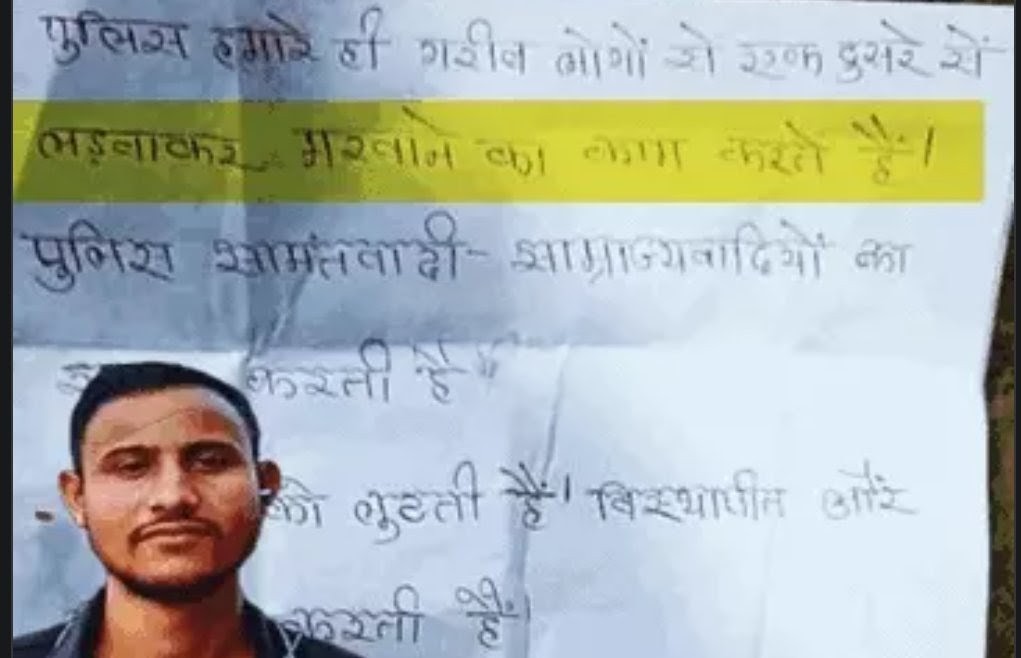 पुलिस हमारे ही गरीब लोगों से एक दुसरे से
लड़वाकर मरवाने का काम करते हैं।
पुलिस सामंतवादी- साम्राज्यवादियों का
करती है"
को लुटती हैं। विस्थापीत और
करती हैं।